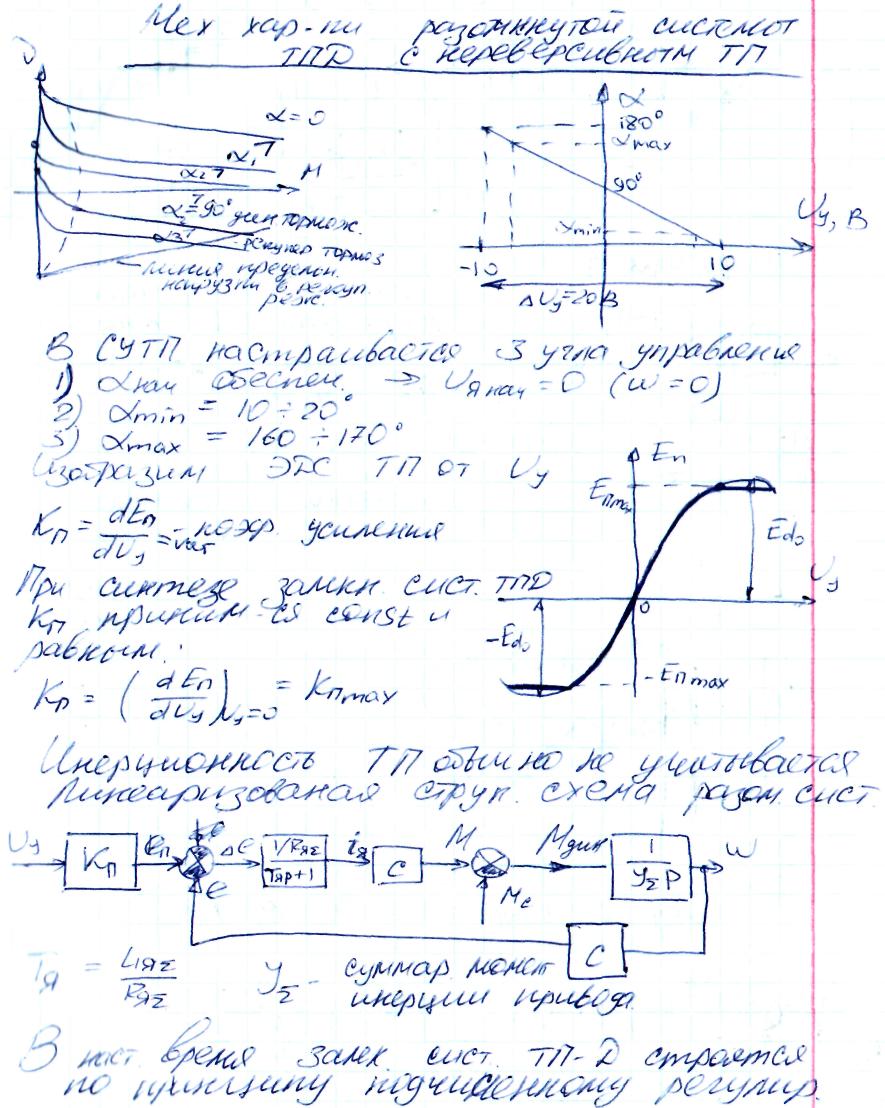 Мех хар-ки разомкнутой системы
ТПД с нереверсивным ТП
α=0
α₁↑
α₂↑
M
α=90° дин тормож.
α3↑
рекупер тормоз
линия предельн.
нагрузки в рекуп.
реж.
α
180°
αmax
90°
αmin
Uу, В
-10
10
ΔUу=20В
В СУТП настраивается 3 угла управления
1) αнач обеспеч. → Uя нач = 0 (ω=0)
2) αmin = 10÷20°
3) αmax = 160÷170°
Изобразим ЭДС ТП от Uу
Eп
Eпmax
Ed₀
Uу
0
-Ed₀
-Eпmax
Kп = dEп/dUу = var - коэф. усиления
При синтезе замкн. сист. ТПД
Kп приним-ся const и
равным:
Kп = (dEп/dUу)Uу=0 = Kпmax
Инерционность ТП обычно не учитывается
Линеаризованая струк. схема разом. сист.
Uу
Kп
eп
Δe
e
1/RяΣ
Tяp+1
iя
C
M
Mc
Mдин
1
JΣ p
ω
C
Tя = LяΣ/RяΣ
JΣ - суммар. момент
инерции привода.
В наст. время замк. сист. ТП-Д строятся
по принципу подчиненному регулир.